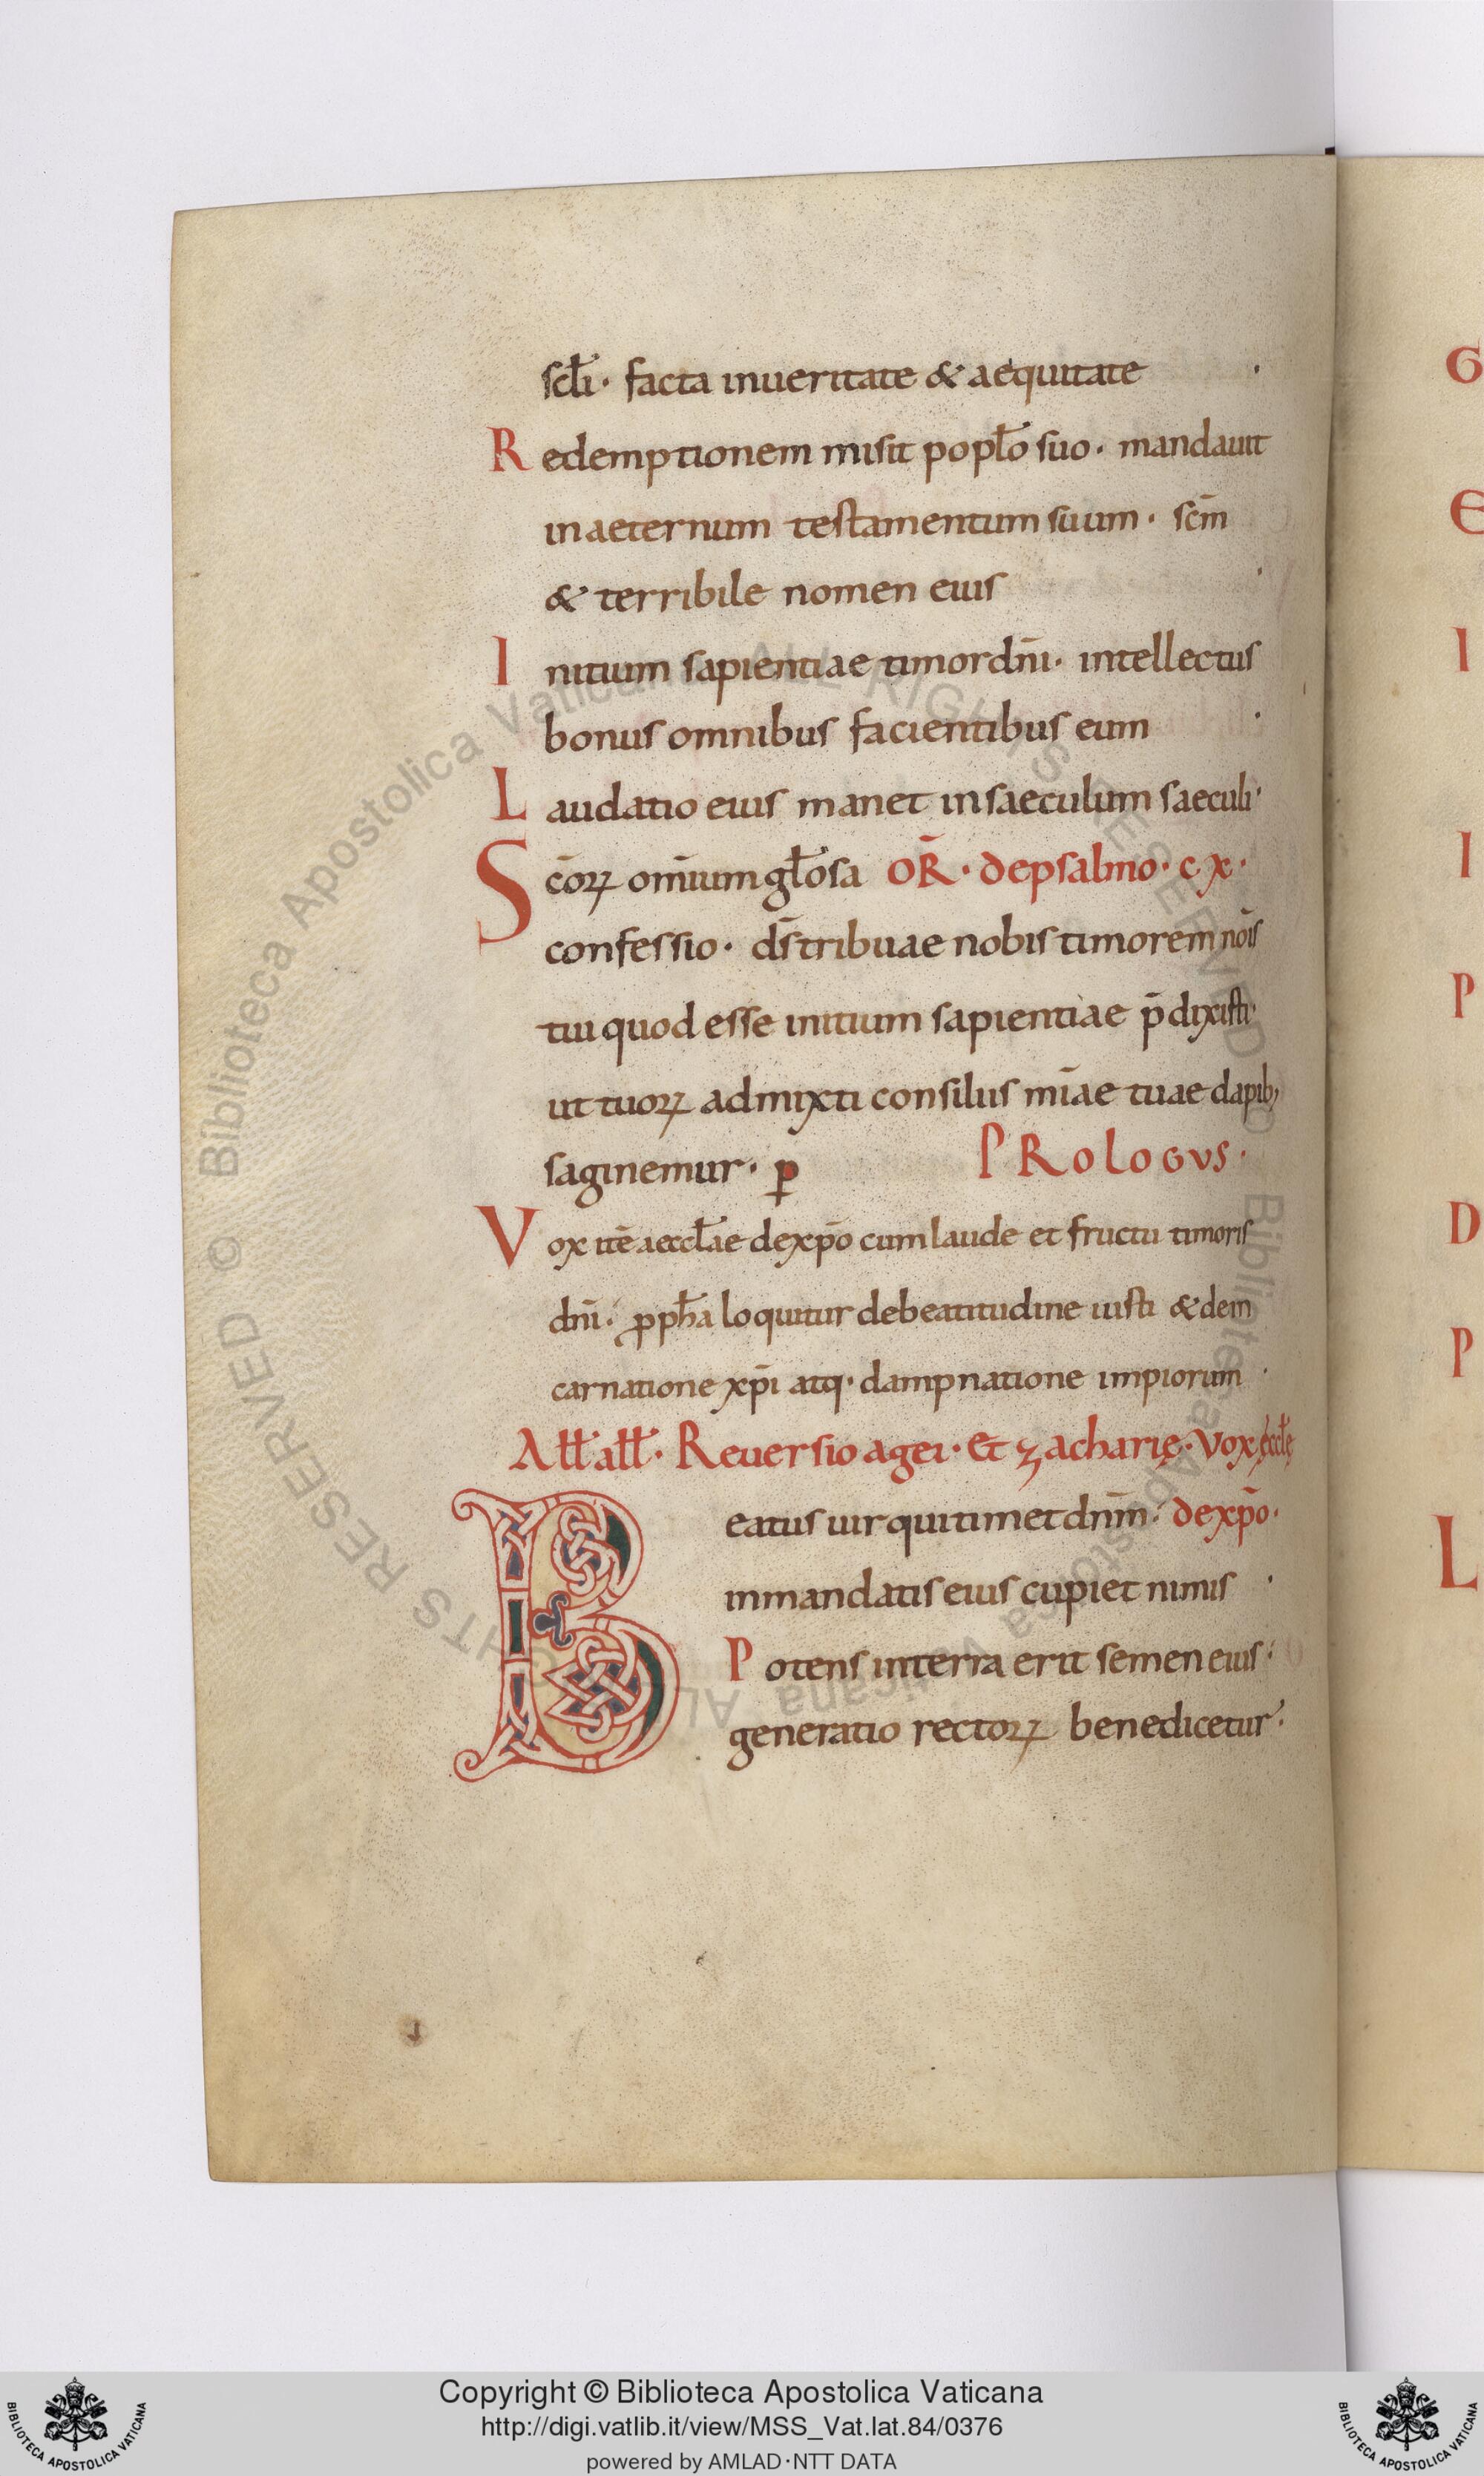 scłi · facta inueritate & aequitate ·
Redemptionem misit popło suo · mandauit
inaeternum testamentum suum · scm̄
& terribile nomen eius ·
Initium sapientiae timor dn̄i · intellectus
bonus omnibus facientibus eum ·
Laudatio eius manet insaeculum saeculi ·
Sc̄oꝝ om̄ium gło͞sa OR̄ · depsalmo · cx ·
confessio · ds̄ tribuae nobis timorem nōis
tui quod esse initium sapientiae p̄dixisti ·
ut tuoꝝ admixti consiliis mīae tuae dapib;
saginemur · p PROLOGVS ·
Vox itē aeccłae dexp̄o cum laude et fructu timoris
dn̄i · ꝓpħa loquitur debeatitudine iusti & dein
carnatione xp̄i atq · dampnatione impiorum ·
Ałł ałł · Reuersio agei · Et zacharię · Vox ęccłę
Beatus uir qui timet dnm̄ · dexp̄o ·
inmandatis eius cupiet nimis ·
Potens interra erit semen eius ·
generatio rectoꝝ benedicetur ·
G
E
I
I
P
D
P
L
© Biblioteca Apostolica Vaticana ALL RIGHTS RESERVED
Copyright © Biblioteca Apostolica Vaticana
http://digi.vatlib.it/view/MSS_Vat.lat.84/0376
powered by AMLAD·NTT DATA
BIBLIOTECA APOSTOLICA VATICANA
BIBLIOTECA APOSTOLICA VATICANA